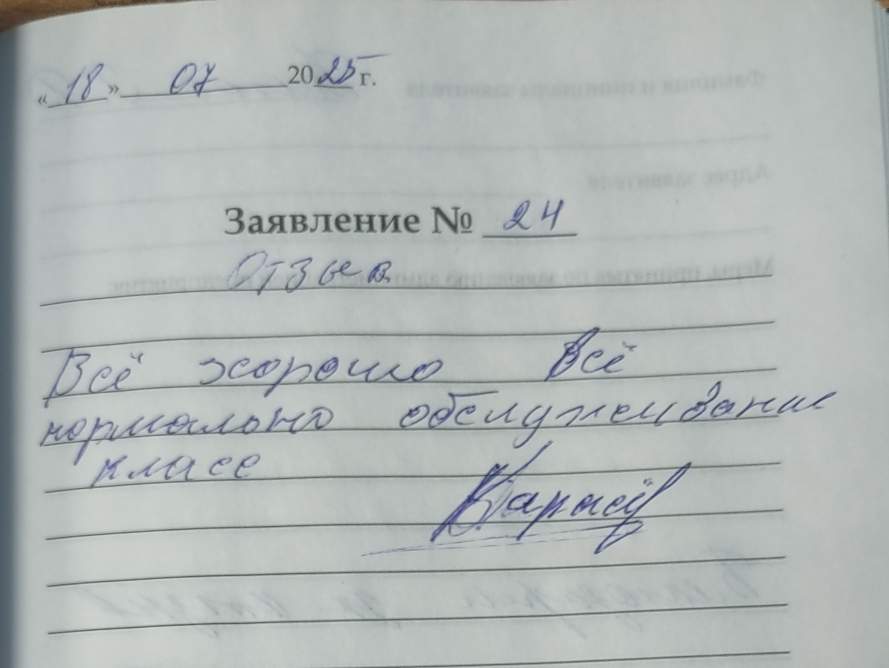 «18» 07 2025 г.
Заявление № 24
Отзыв
Всё хорошо Всё
нормально обслуживание
класс